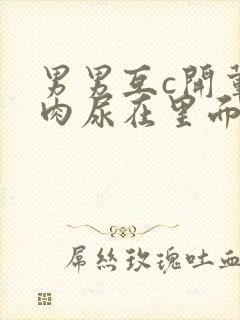 男男互c開
肉尿在里而
屌絲玫瑰吐血